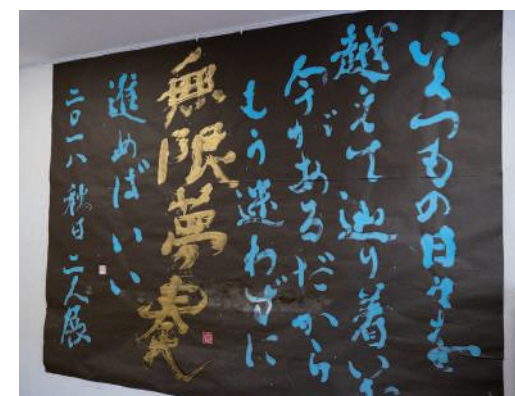 いくつもの日々を
越えて辿り着いた
今があるだから
もう迷わずに
無限夢奏
進めばいい
二〇一八 秋日 二人展